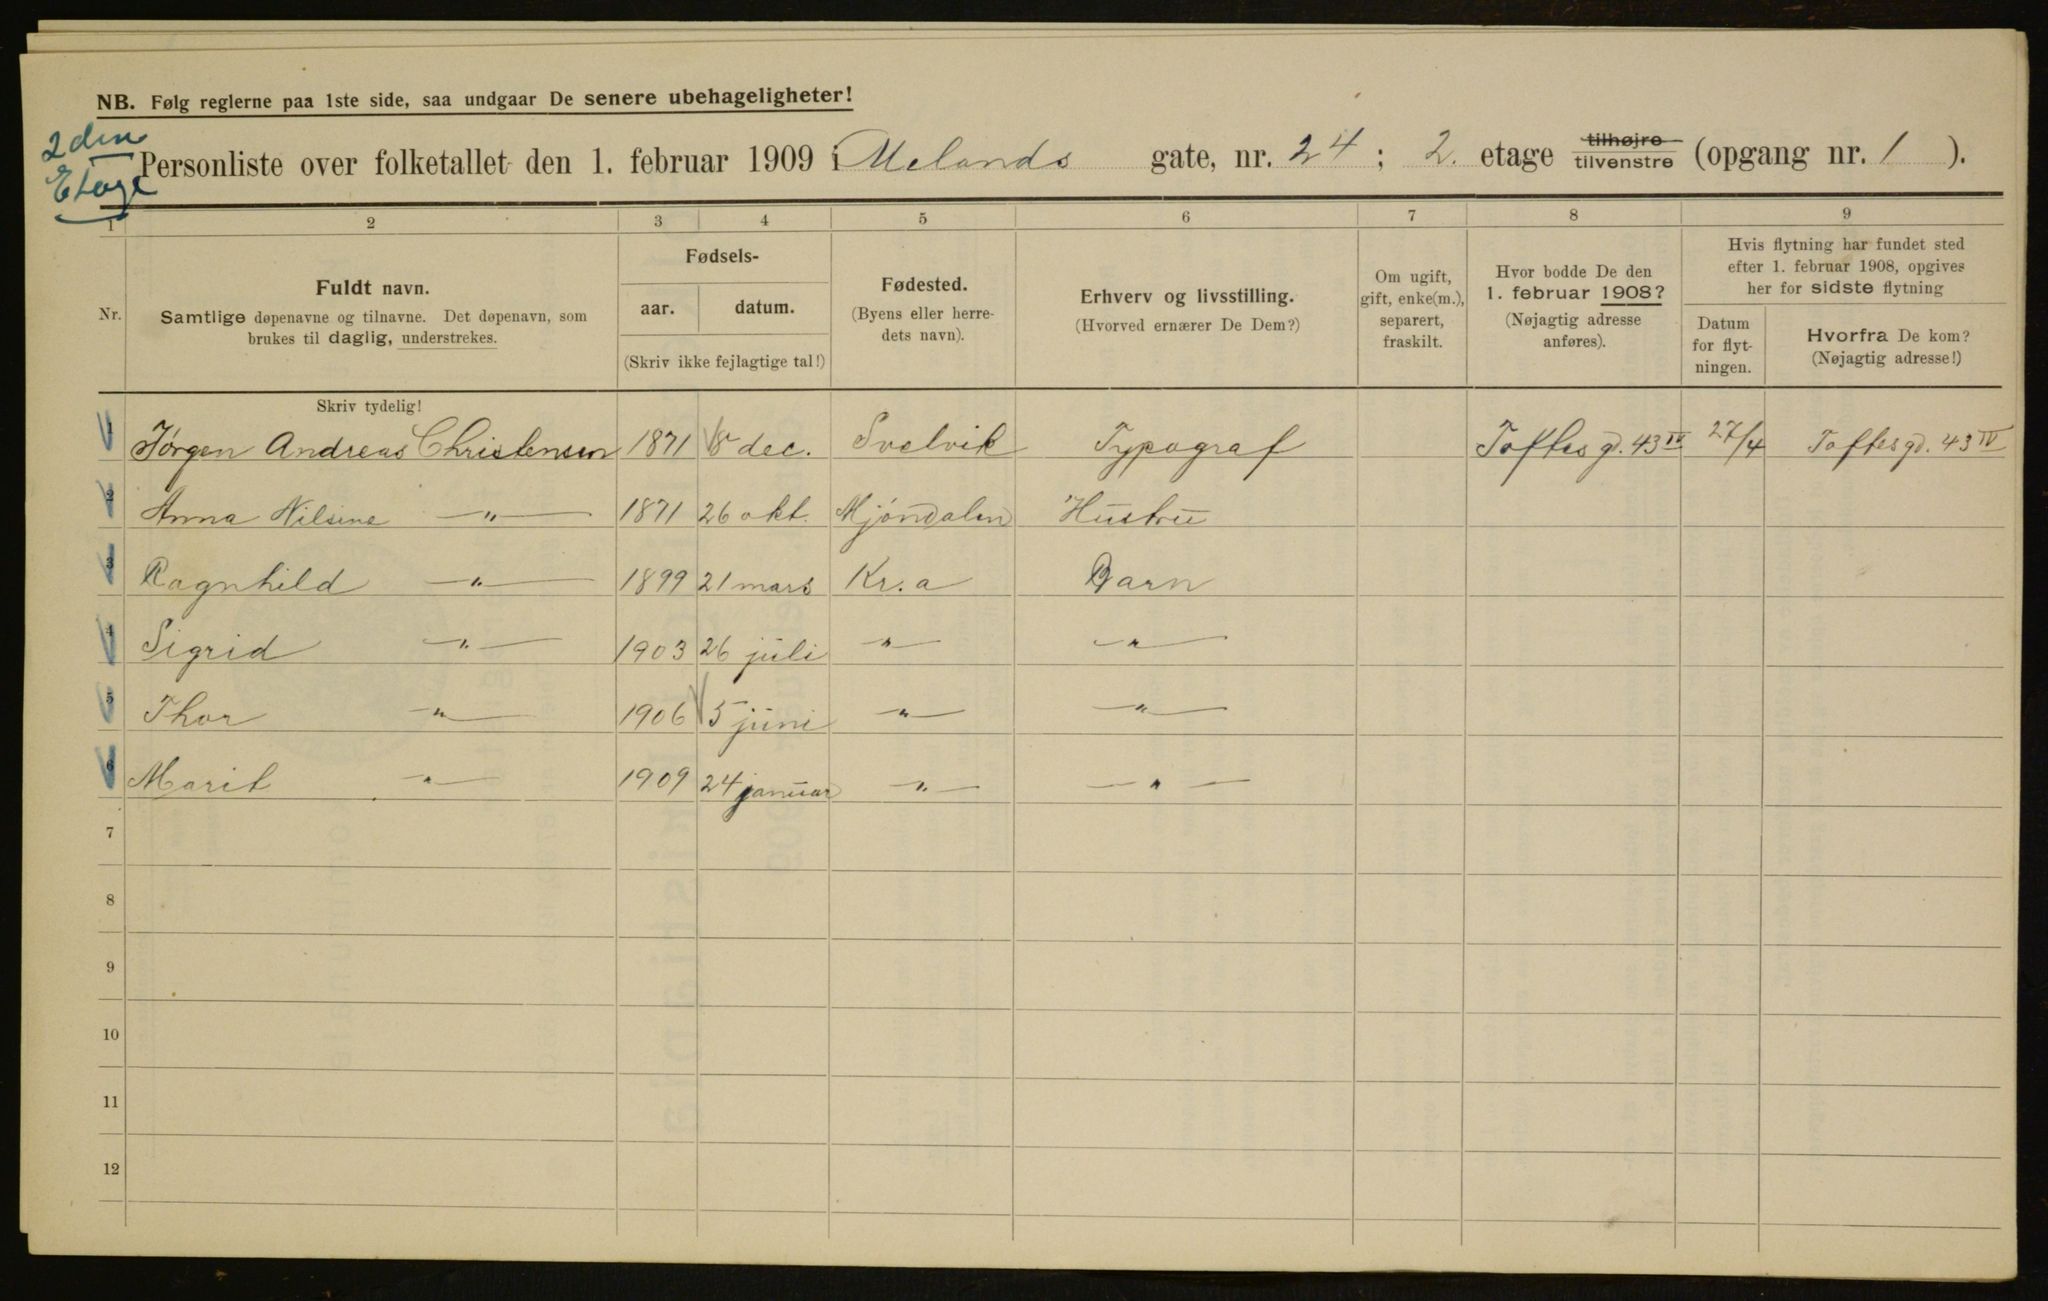 NB. Følg reglerne paa 1ste side, saa undgaar De senere ubehageligheter!
2den Etage
Personliste over folketallet den 1. februar 1909 i Uelands gate, nr. 24; 2. etage tilhøjre tilvenstre (opgang nr. 1).
1 2 3 4 5 6 7 8 9
Nr.
Fuldt navn.
Samtlige døpenavne og tilnavne. Det døpenavn, som
brukes til daglig, understrekes.
Fødsels-
aar. datum.
(Skriv ikke fejlagtige tal!)
Fødested.
(Byens eller herre-
dets navn).
Erhverv og livsstilling.
(Hvorved ernærer De Dem?)
Om ugift,
gift, enke(m.),
separert,
fraskilt.
Hvor bodde De den
1. februar 1908?
(Nøjagtig adresse
anføres).
Hvis flytning har fundet sted
efter 1. februar 1908, opgives
her for sidste flytning
Datum
for flyt-
ningen.
Hvorfra De kom?
(Nøjagtig adresse!)
Skriv tydelig!
1 Jörgen Andreas Christensen 1871 8 dec. Svelvik Typograf Toftes gd. 43 IV 27/4 Toftes gd. 43 IV
2 Anna Nilsine —"— 1871 26 okt. Mjöndalen Hustru
3 Ragnhild —"— 1899 21 mars Kr.a Barn
4 Sigrid —"— 1903 26 juli —"— —"—
5 Thor —"— 1906 5 juni —"— —"—
6 Marit —"— 1909 24 januar —"— —"—
7
8
9
10
11
12